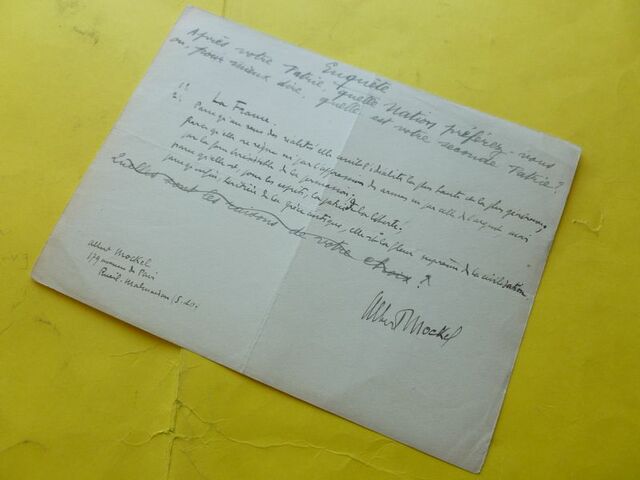 Enquête
Après votre Patrie, quelle Nation préférez-vous
ou, pour mieux dire, quelle est votre seconde Patrie?
1º
2º La France.
Parce qu'au sens des réalités elle unit l'idéalité la plus haute et la plus généreuse;
parce qu'elle ne règne ni par l'oppression des armes ni par celle de l'argent, mais
par la force irrésistible de la persuasion;
parce qu'elle est pour les esprits, la patrie de la liberté.
parce qu'enfin, héritière de la grâce antique, elle est la fleur suprême de la civilisation
Quelles sont les raisons de votre choix?
Albert Mockel
179 avenue de Paris
Rueil-Malmaison (S.&O.)
Albert Mockel